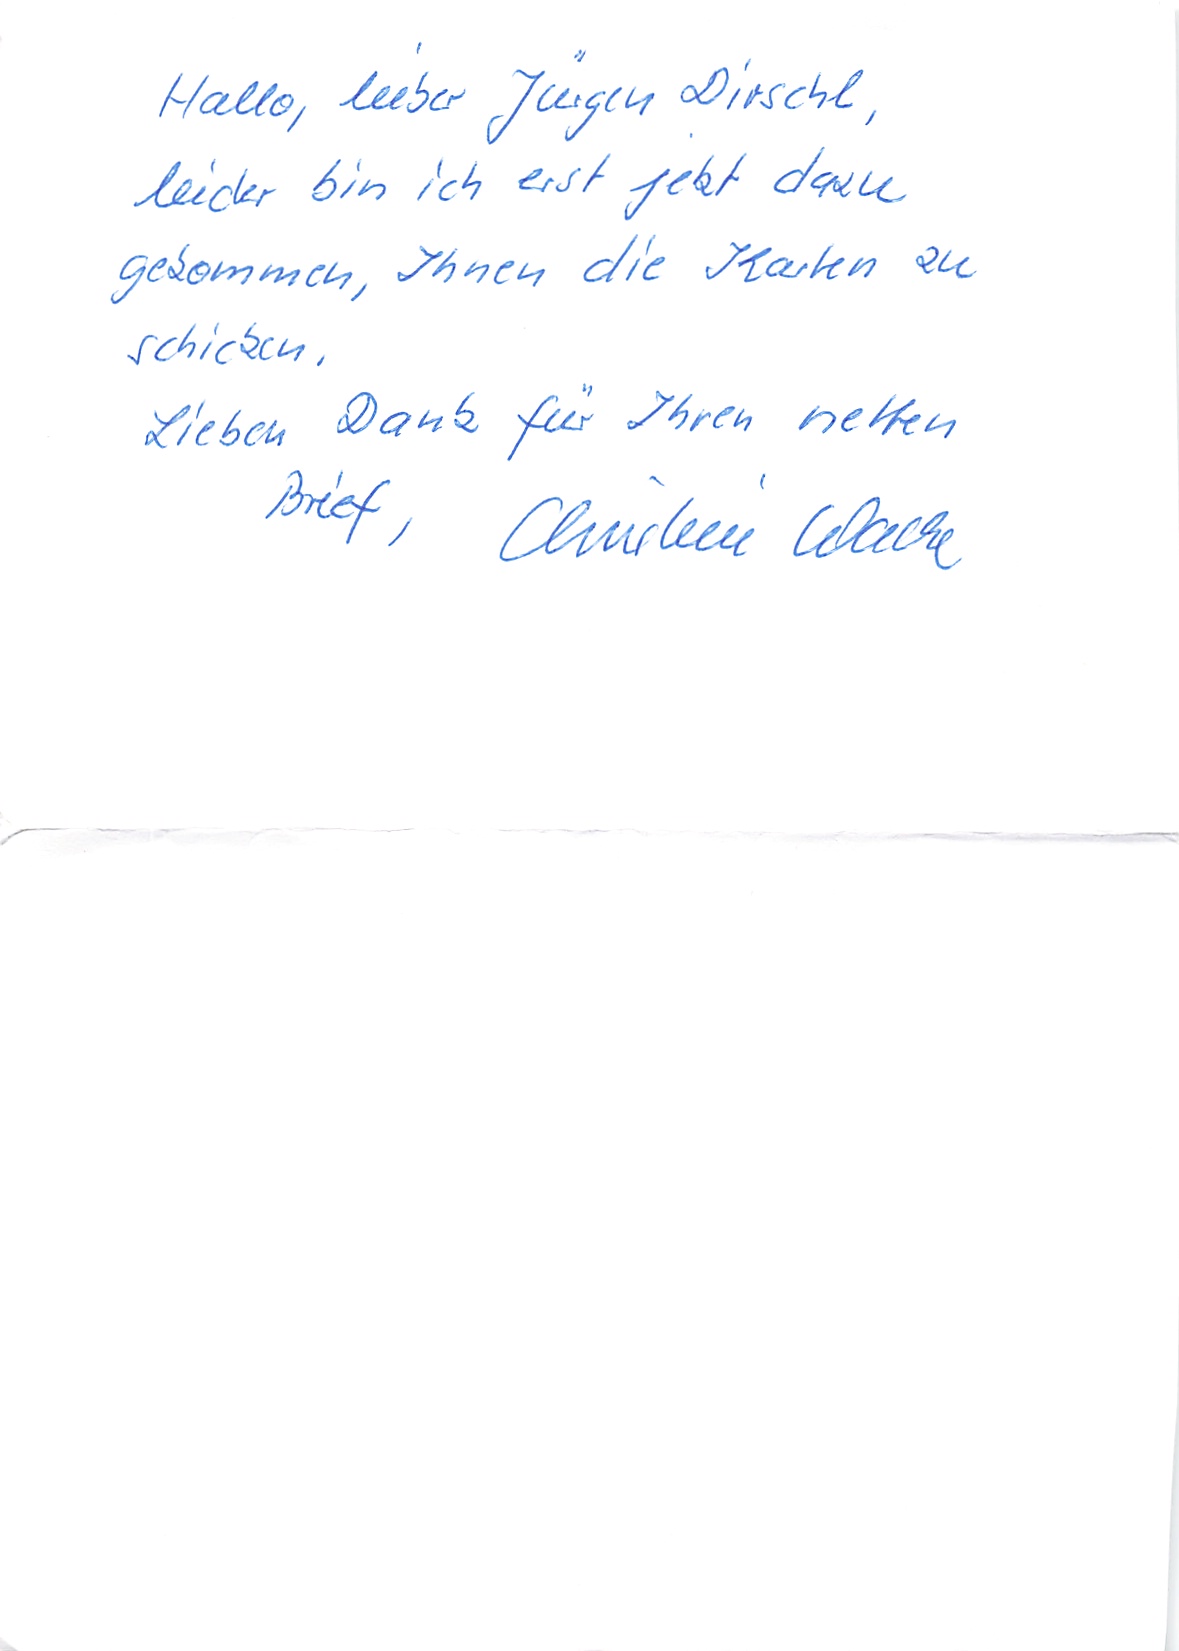 Hallo, lieber Jürgen Dirschl,
leider bin ich erst jetzt dazu
gekommen, Ihnen die Karten zu
schicken.
Lieben Dank für Ihren netten
Brief, Christine Wacke